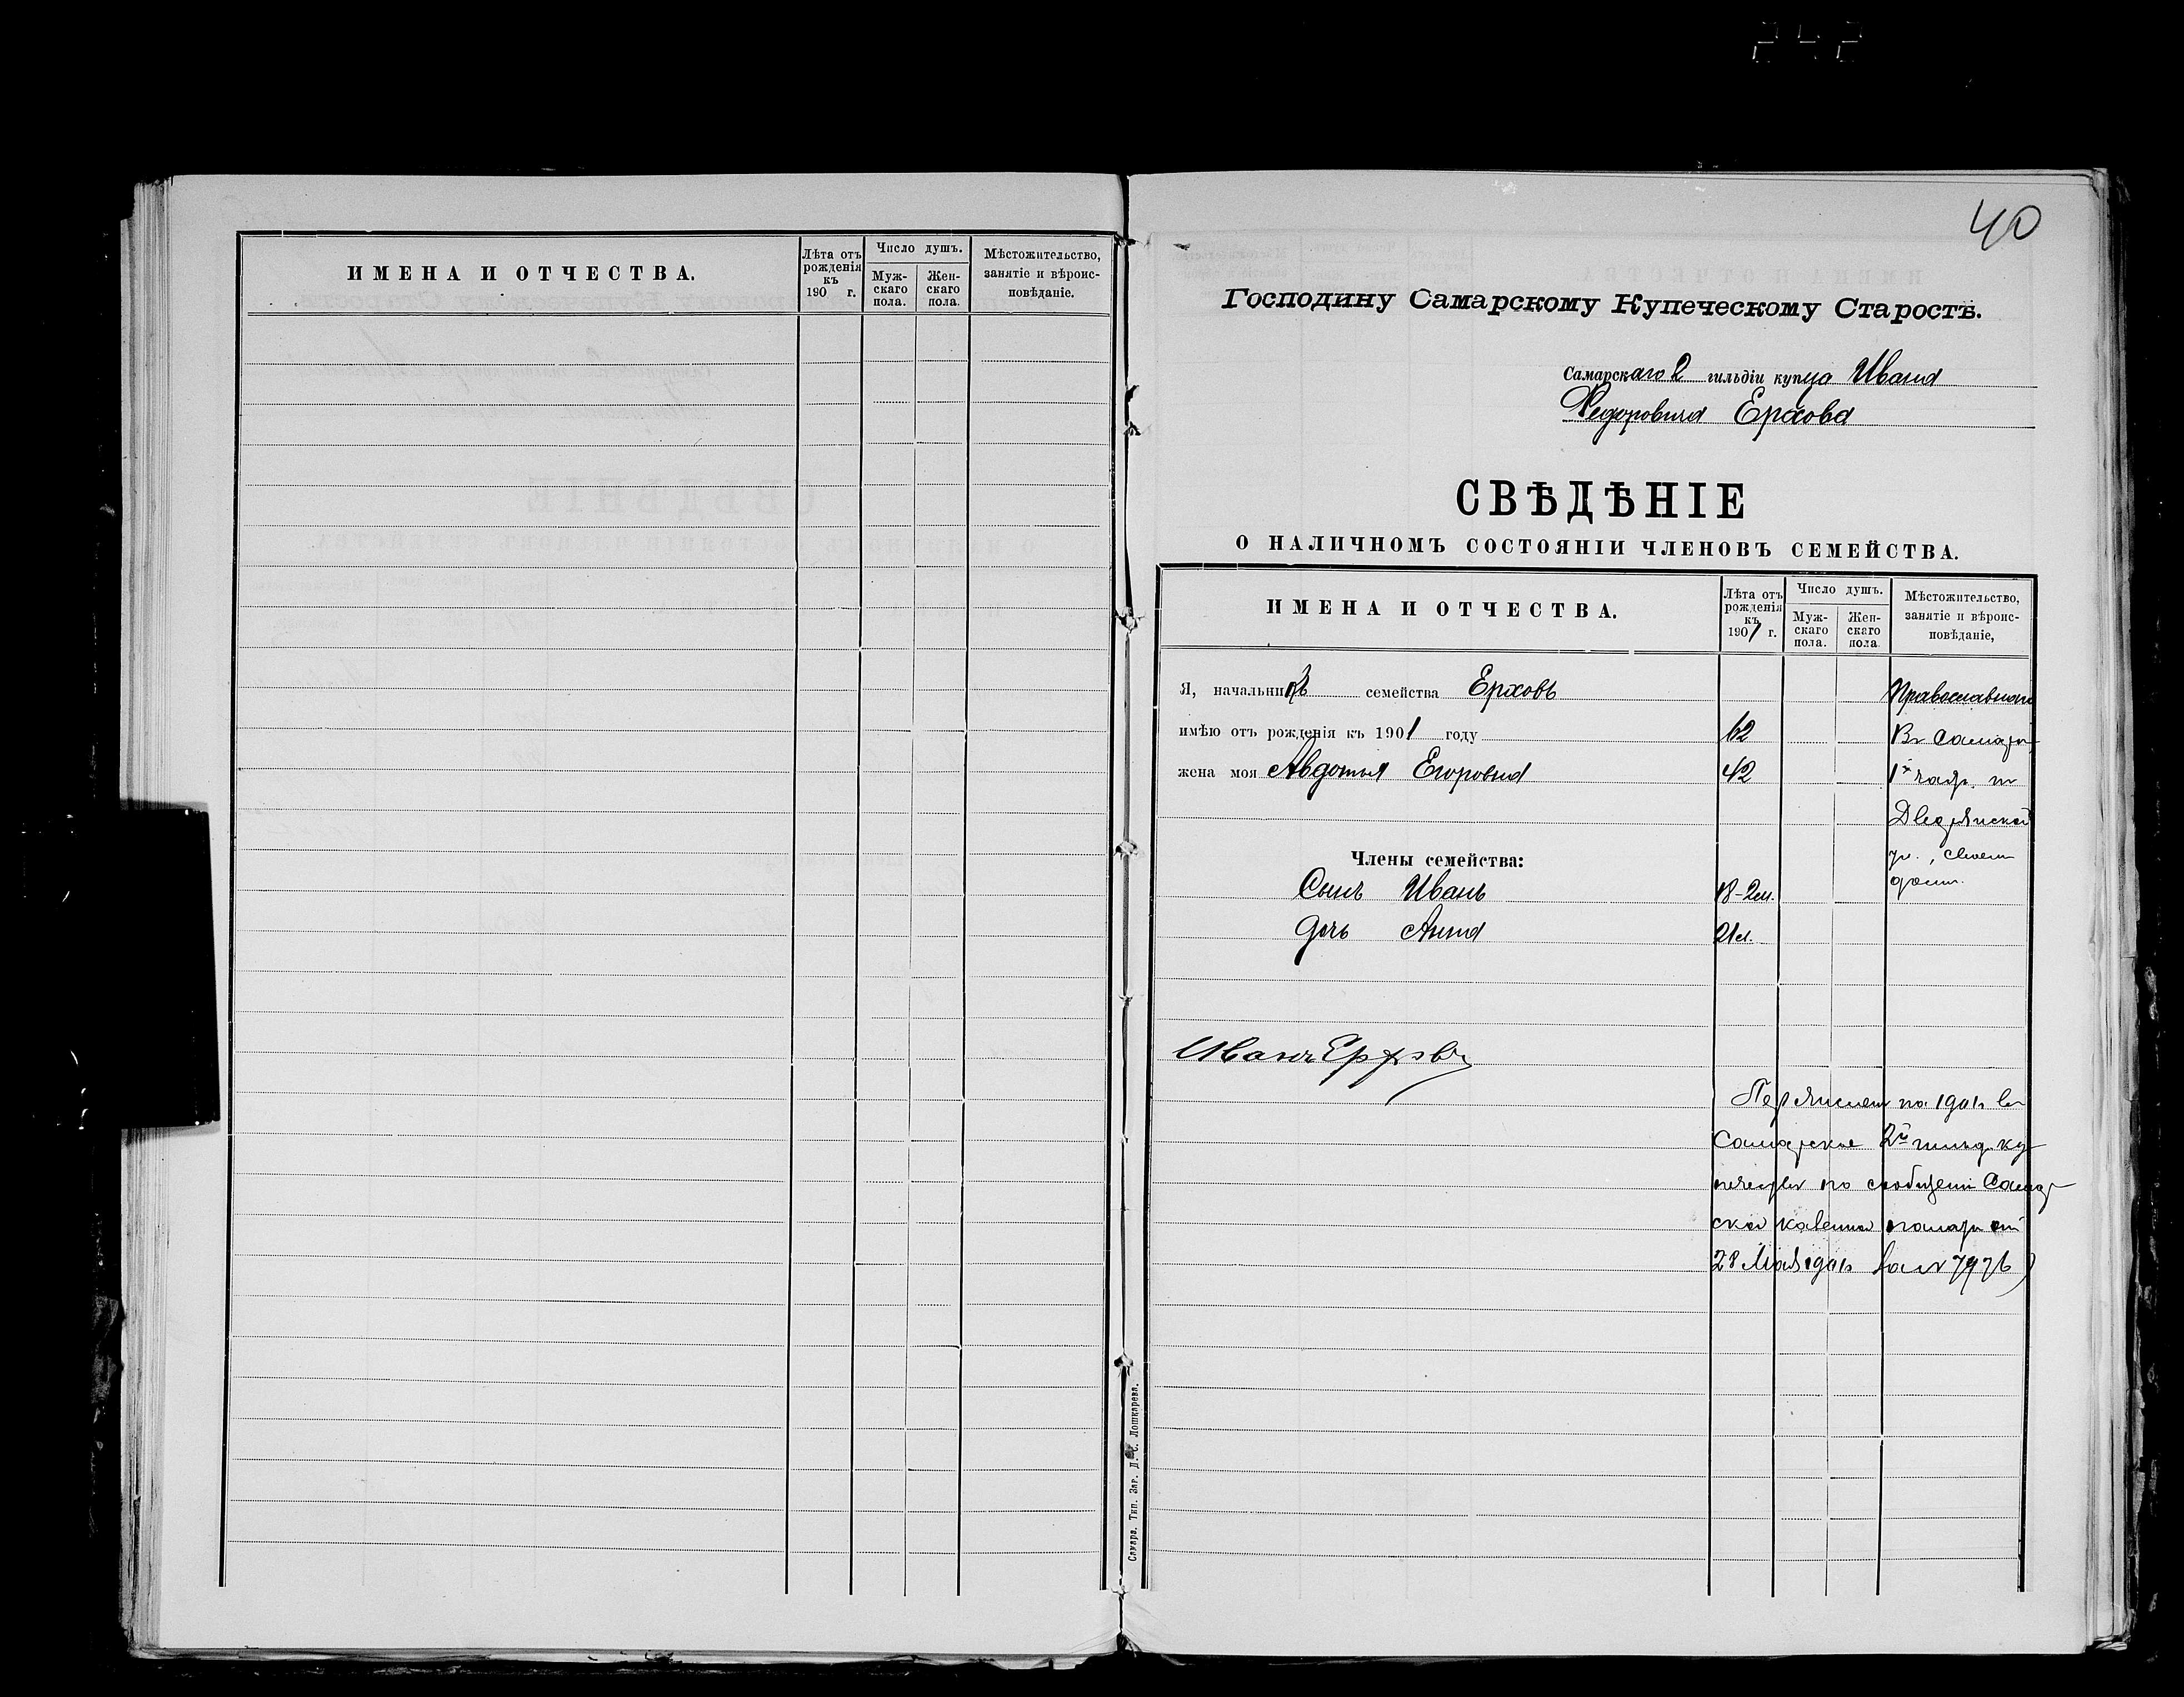 242
ИМЕНА И ОТЧЕСТВА.
Лѣта отъ рожденія къ 190 г.
Число душъ.
Муж-скаго пола.
Жен-скаго пола.
Мѣстожительство, занятіе и вѣроис-повѣданіе.
40
Господину Самарскому Купеческому Старостѣ.
Самарскаго 2 гильдіи купца Ивана
Федоровича Ерхова
СВѢДѢНІЕ
О НАЛИЧНОМЪ СОСТОЯНІИ ЧЛЕНОВЪ СЕМЕЙСТВА.
ИМЕНА И ОТЧЕСТВА.
Лѣта отъ рожденія къ 1901 г.
Число душъ.
Муж-скаго пола.
Жен-скаго пола
Мѣстожительство, занятіе и вѣроис-повѣданіе,
Я, начальникъ семейства Ерховъ Православнаго
имѣю отъ рожденія къ 1901 году 62 Въ Самарѣ
жена моя Авдотья Егоровна 42 1й части
Дворянской
ул., своем
доме.
Члены семейства:
Сынъ Иванъ 18-2м.
дочь Анна 21л.
Иванъ Ерховъ
Перечислен на 1901г. въ
Самарское 2й гильд. ку
печество по сообщенію Самар
ской казенной палаты отъ
28 Мая 1901г. за № 7976)
Самара. Тип. Заг. Д. С. Лошкарева.